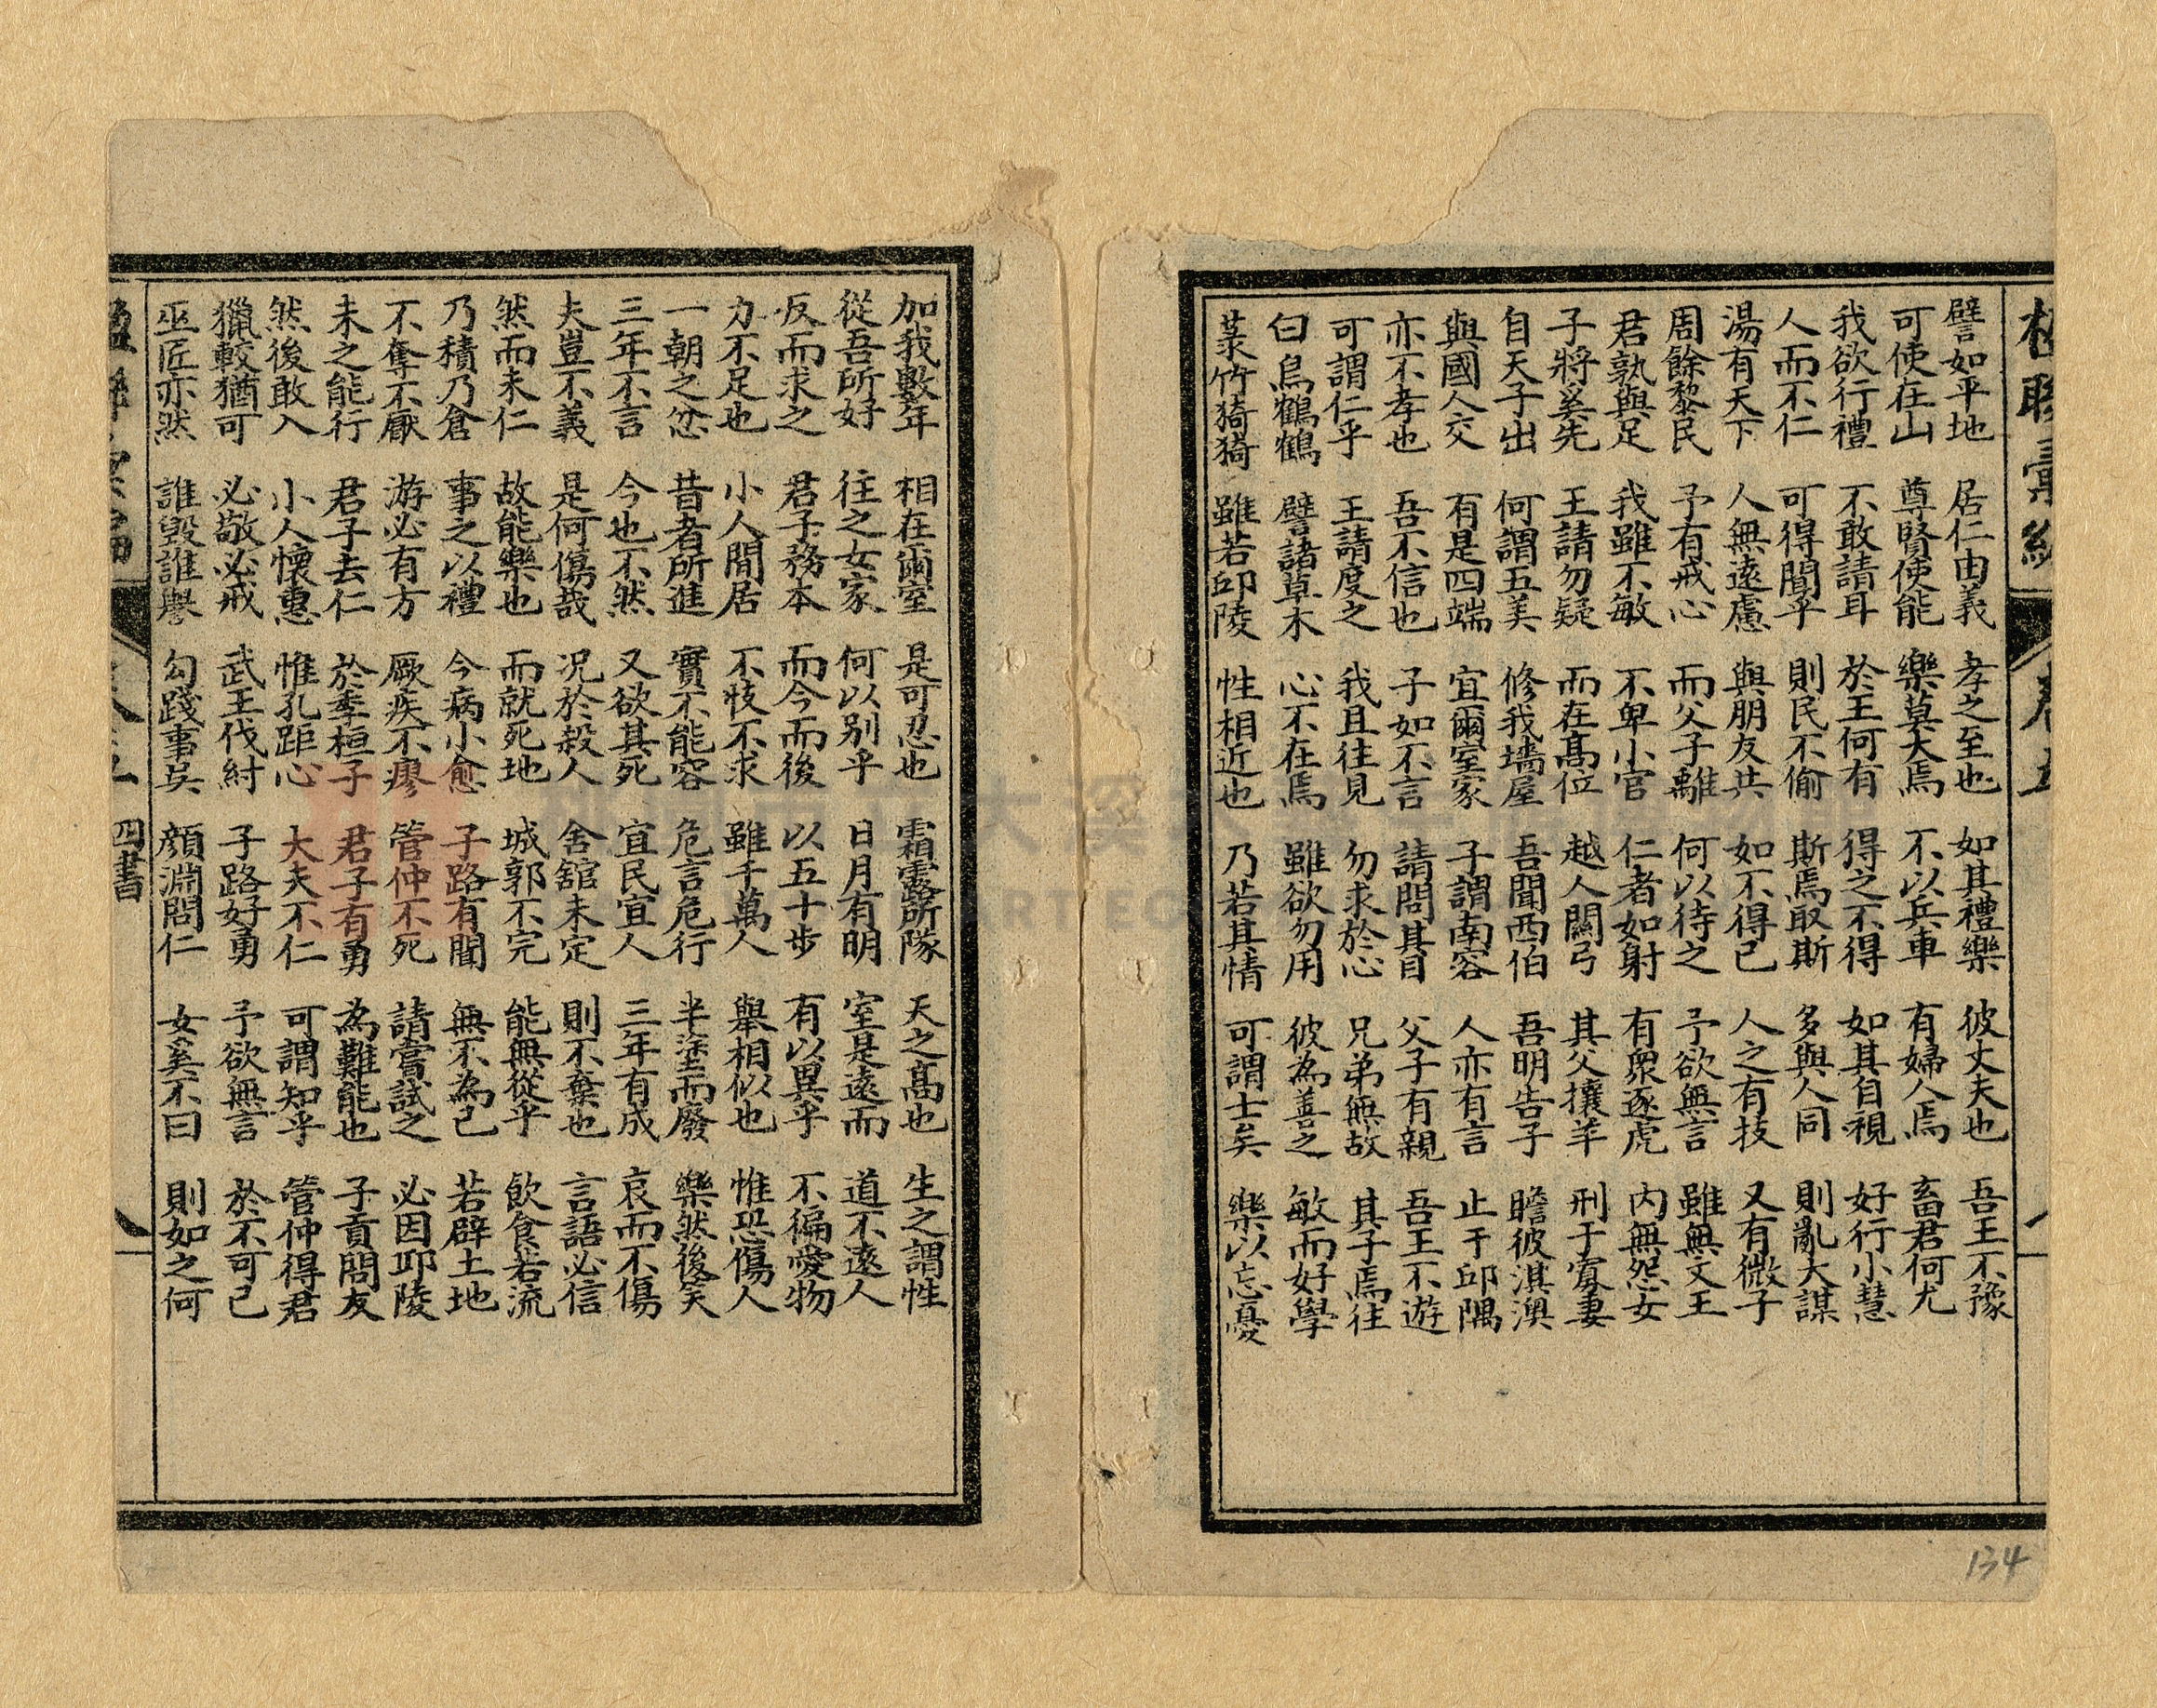 譬如平地 居仁由義 孝之至也 如其禮樂 彼丈夫也 吾王不豫
可使在山 尊賢使能 樂莫大焉 不以兵車 有婦人焉 畜君何尤
我欲行禮 不敢請耳 於王何有 得之不得 如其自視 好行小慧
人而不仁 可得聞乎 則民不偷 斯焉取斯 多與人同 則亂大謀
湯有天下 人無遠慮 與朋友共 如不得已 人之有技 又有微子
周餘黎民 予有戒心 而父子離 何以待之 予欲無言 雖無文王
君孰與足 我雖不敏 不卑小官 仁者如射 有眾逐虎 內無怨女
子將奚先 王請勿疑 而在高位 越人關弓 其父攘羊 刑于寡妻
自天子出 何謂五美 修我墻屋 吾聞西伯 吾明告子 瞻彼淇澳
與國人交 有是四端 宜爾室家 子謂南容 人亦有言 止于邱隅
亦不孝也 吾不信也 子如不言 請問其目 父子有親 吾王不遊
可謂仁乎 王請度之 我且往見 勿求於心 兄弟無故 其子焉往
白鳥鶴鶴 譬諸草木 心不在焉 雖欲勿用 彼為善之 敏而好學
菉竹猗猗 雖若邱陵 性相近也 乃若其情 可謂士矣 樂以忘憂
加我數年 相在爾室 是可忍也 霜露所隊 天之高也 生之謂性
從吾所好 往之女家 何以別乎 日月有明 室是遠而 道不遠人
反而求之 君子務本 而今而後 以五十步 有以異乎 不徧愛物
力不足也 小人閒居 不忮不求 雖千萬人 舉相似也 惟恐傷人
一朝之忿 昔者所進 實不能容 危言危行 半塗而廢 樂然後笑
三年不言 今也不然 又欲其死 宜民宜人 三年有成 哀而不傷
夫豈不義 是何傷哉 況於殺人 舍館未定 則不棄也 言語必信
然而未仁 故能樂也 而就死地 城郭不完 能無從乎 飲食若流
乃積乃倉 事之以禮 今病小愈 子路有聞 無不為已 若辟土地
不奪不厭 游必有方 厥疾不瘳 管仲不死 請嘗試之 必因邱陵
未之能行 君子去仁 於季桓子 君子有勇 為難能也 子貢問友
然後敢入 小人懷惠 惟孔距心 大夫不仁 可謂知乎 管仲得君
獵較猶可 必敬必戒 武王伐紂 子路好勇 予欲無言 於不可已
巫匠亦然 誰毀誰譽 勾踐事吳 顏淵問仁 女奚不曰 則如之何
四書
134